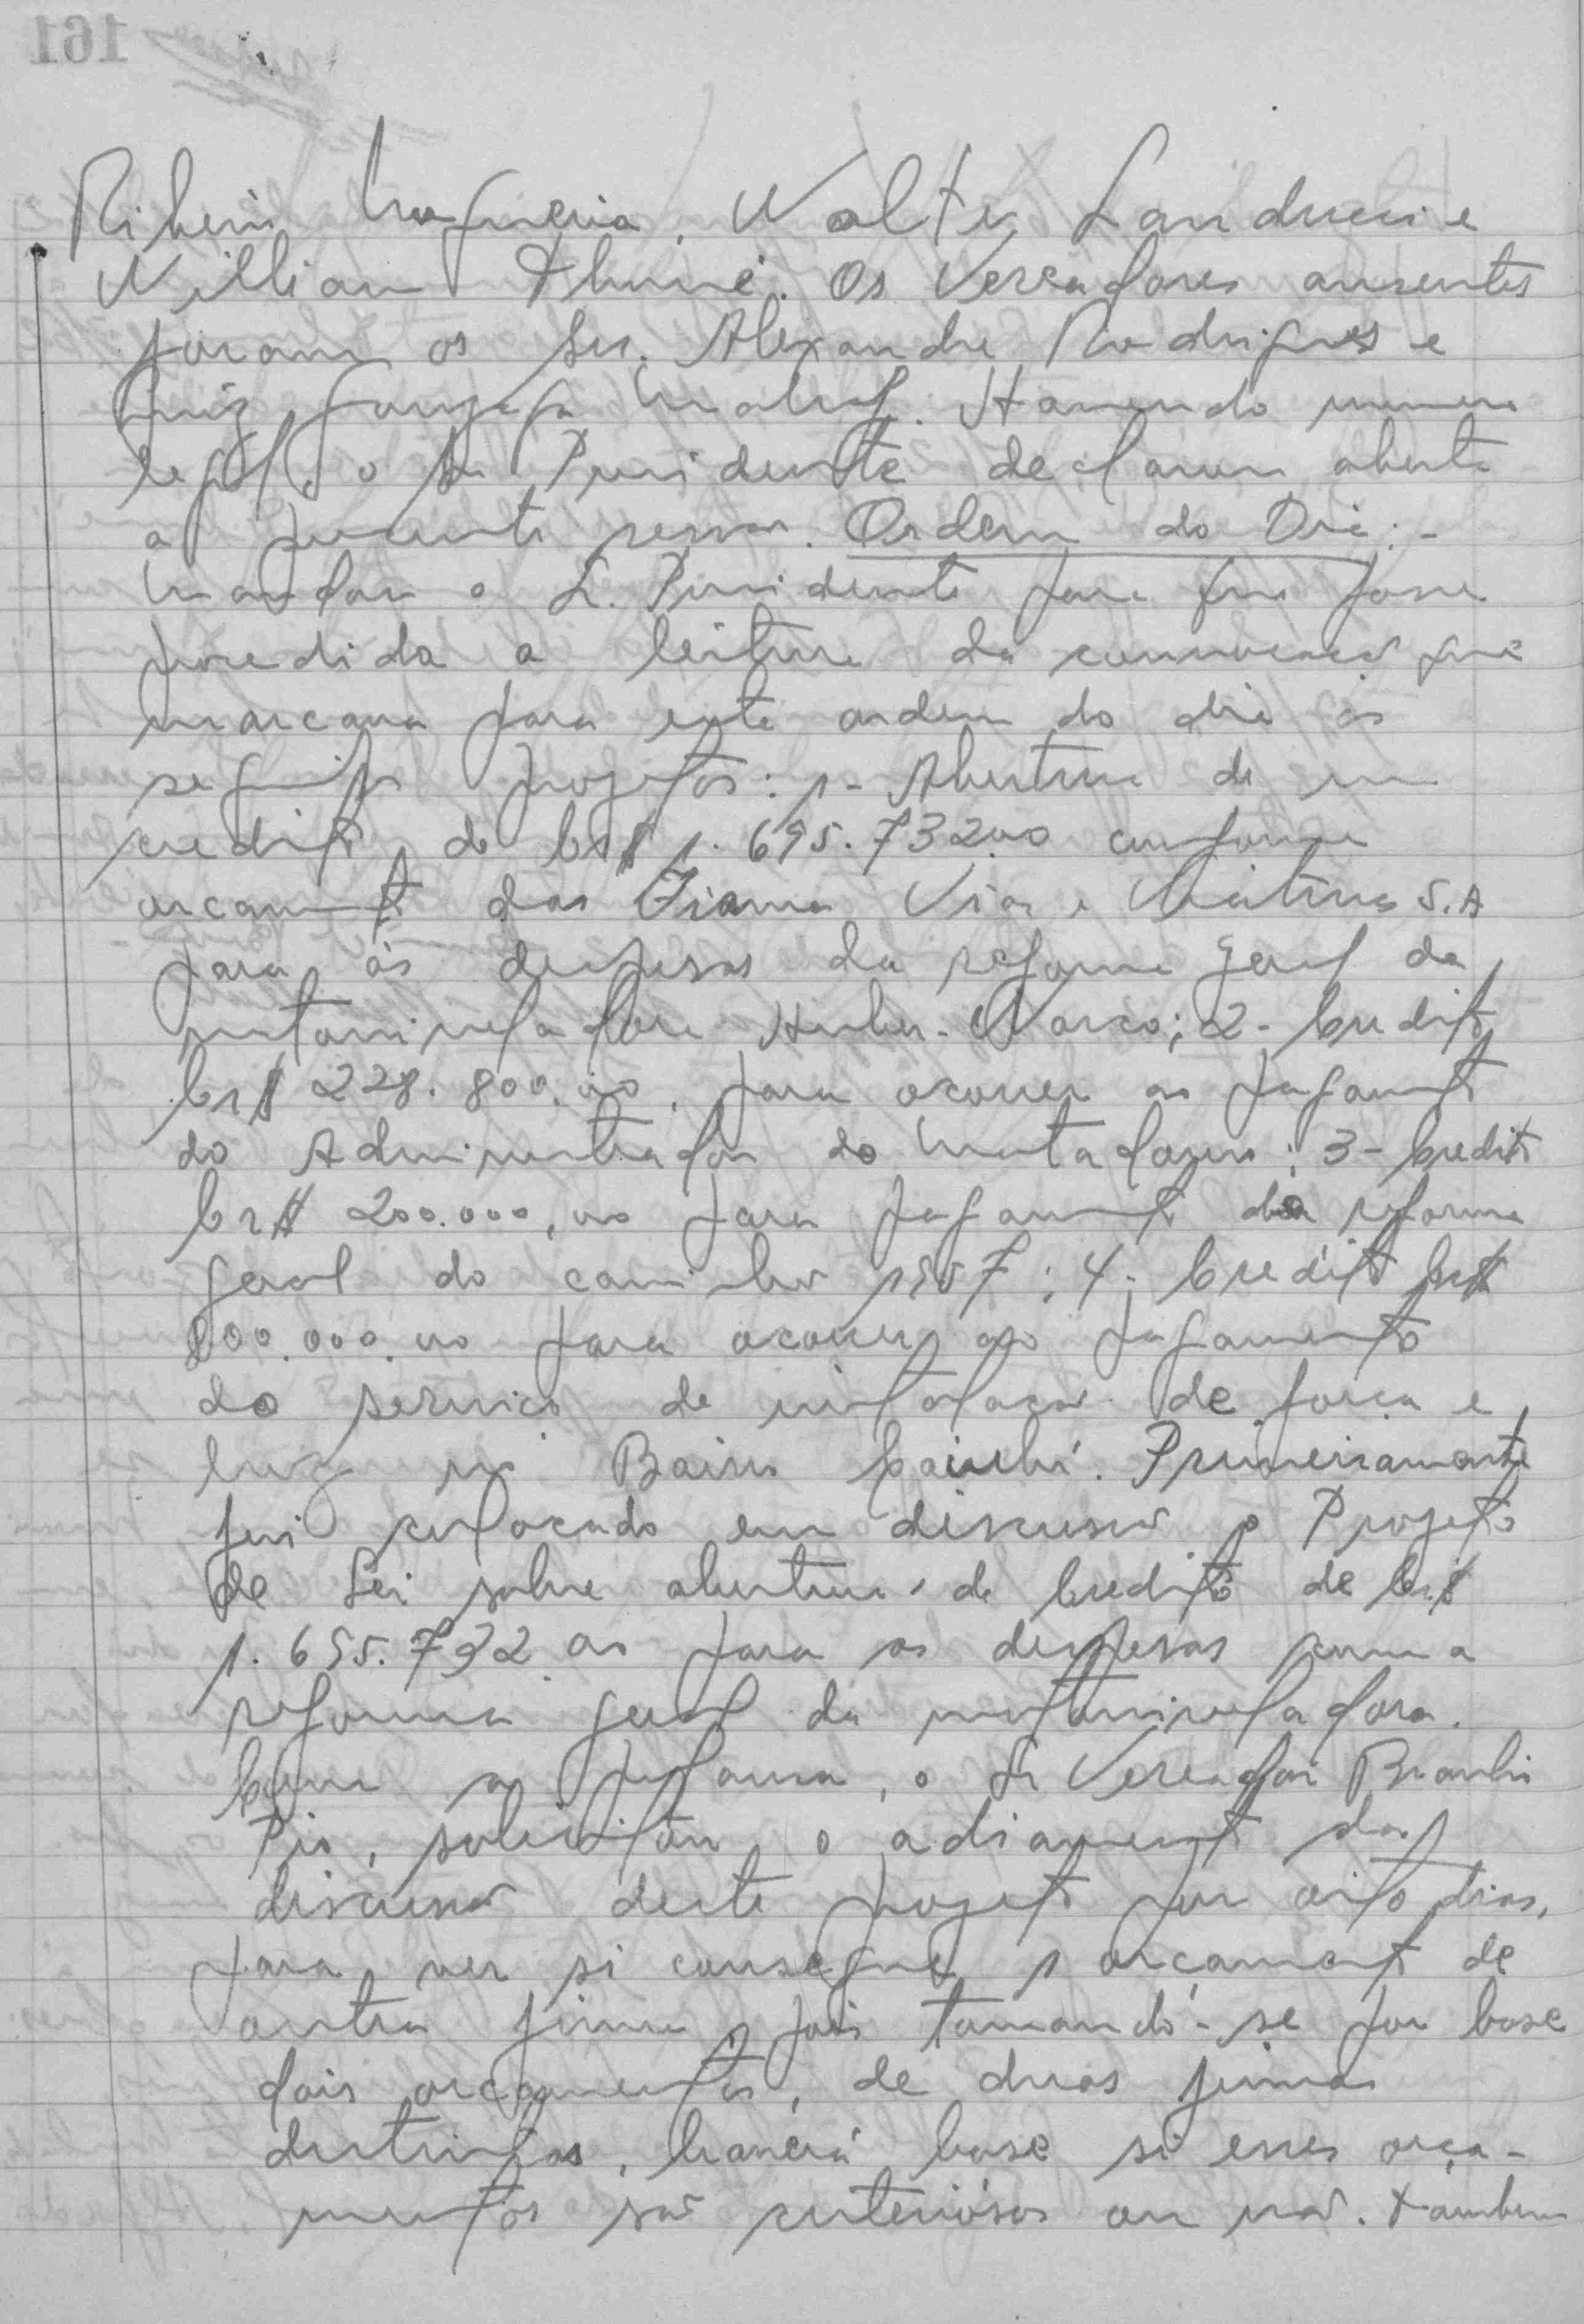 Ribeiro Nogueira, Walter Landucci e
William . Os Vereadores ausentes
foram os Srs. Alexandre Rodrigues e
Luiz Gonzaga . Havendo numero
legal, o Sr Presidente declarou aberta
a presente sessão. Ordem do Dia:-
Mandou o S. Presidente para que fosse
procedida a leitura da convocação que
marcava para esta ordem do dia os
seguintes projetos: 1- Abertura de um
credito de Cr$ 1.695.732,00 conforme
orçamento das Firma Vias e S.A
para ás despesas da reforma geral da
motoniveladora Huber-Warco; 2- Credito
Cr$ 228.800,00, para ocorrer ao pagamento
do Administrador do Matadouro; 3- Credito
Cr$ 200.000,00 para pagamento da reforma
geral do caminhão ; 4- Credito Cr$
800.000,00 para ocorrer ao pagamento
do serviço de instalação de força e
luz no Bairro . Primeiramente
foi colocado em discussão o Projeto
de Lei sobre abertura de Credito de Cr$
1.695.732,00 para as despesas com a
reforma geral da motoniveladora.
Com a palavra, o Sr Vereador
Pio, solicitou o adiamento da
discussão deste projeto por oito dias,
para ver si consegue 1 orçamento de
outra firma, pois tomando-se por base
dois orçamentos, de duas firmas
distintas, haverá base si esses orça-
mentos são criteriósos ou não. Tambem